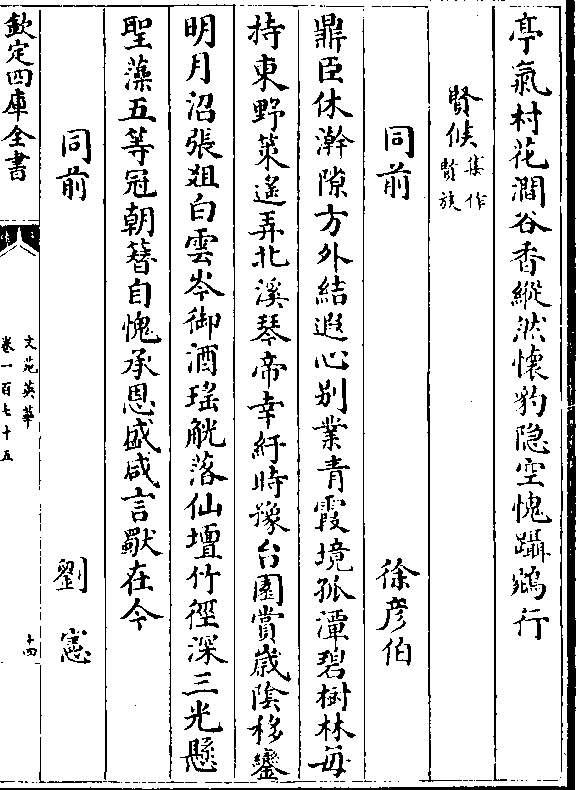 亭氣村花澗谷香縱然懷豹隠空愧躡鵷行
賢候集作
賢族
同前　徐彦伯
鼎臣休瀚隙方外結遐心别業青霞境孤潭碧樹林每
持東野策遙弄北溪琴帝幸紆時豫台園賞歲陰移鑾
明月沼張組白雲岑御酒瑤觥落仙壇竹徑深三光懸
聖藻五等冠朝簮自愧承恩盛咸言獸在今
同前　劉憲
欽定四庫全書
文苑英華
卷一百七十五
十四